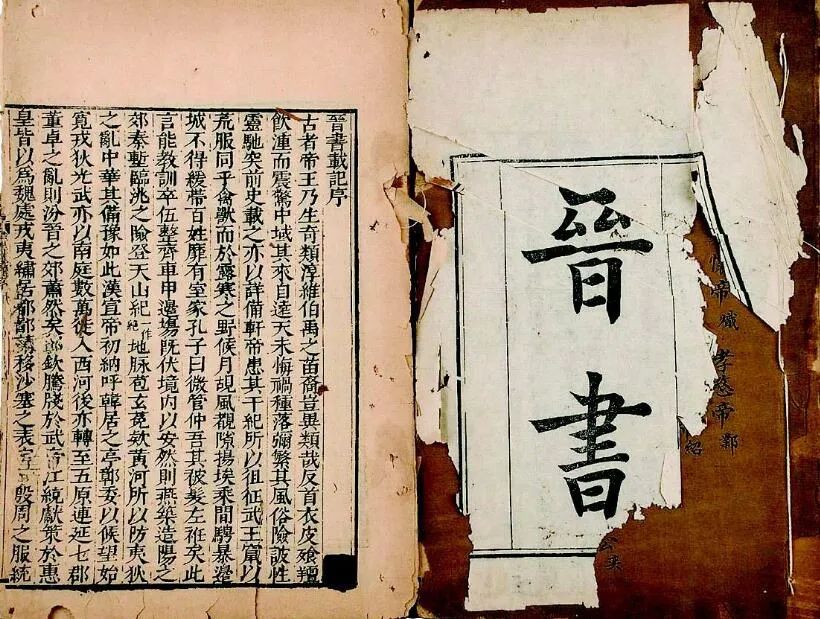 晉書
帝
孝慈帝鄴
紹
晉書載記序
古者帝王乃生奇類淳維伯禹之苗裔豈異類哉反首衣皮飱羶
飲湩而震驚中域其來自遠天未悔禍種落彌繁其風俗險詖性
靈馳突前史載之亦以詳備軒帝患其干紀所以徂征武王竄以
荒服同乎禽獸而於露寒之野候月覘風覩隙揚埃乘間騁暴邊
城不得緩帶百姓靡有室家孔子曰微管仲吾其被髮左衽矣此
言能教訓卒伍整齊車甲邊塲既伏境內以安然則燕築造陽之
郊秦塹臨洮之險登天山紀一作絕地脉苞玄菟欵黃河所以防夷狄
之亂中華其備豫如此漢宣帝初納呼韓居之亭鄣委以候望始
寬戎狄光武亦以南庭數萬徙入西河後亦轉至五原連延七郡
董卓之亂則汾晉之郊蕭然矣郭欽騰牋於武帝江統獻策於惠
皇皆以爲魏處戎夷繡居都鄙請移沙塞之表定殷周之服統